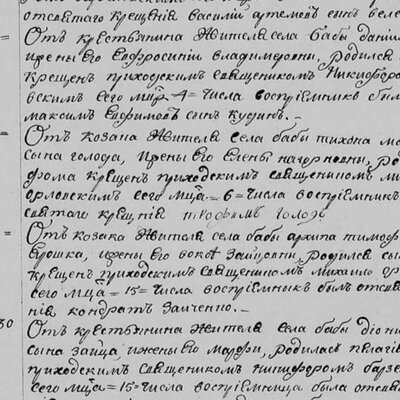 отсвятаго крещенія василий артемовъ сынъ веле
Отъ крестьянина жителя села бабы данiи
ирены его Евфросиніи владимеровни, родился
крещенъ приходскимъ священикомъ Никифоро
вскимъ сего мца = 4 = числа восприемникъ был
максимъ Ефимовъ сынъ
Отъ козака жителя села бабы тихона ма
сына голода, ижены его Елены родi
крещенъ приходскимъ священикомъ ми
орловскимъ сего мца = 6 = числа восприемник
святаго крещенія трофимъ голодъ
Отъ козака жителя села бабы архипа тимоф
ижены его родился сы
крещенъ приходскимъ священикомъ михаило ор
сего мца = 15 = числа восприемникъ былъ отсвя
нія кондратъ Заиченко.
30 Отъ крестьянина жителя села бабы діони
сына зайца, ижены его марфи, родилась пелагія
приходскимъ священикомъ никифоромъ барзе
сего мца = 15 = числа восприемница была отсвя